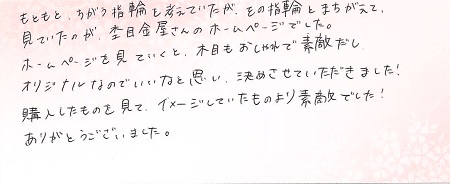 もともと、ちがう指輪を考えていたが、その指輪とまちがえて、
見ていたのが、杢目金屋さんのホームページでした。
ホームページを見ていくと、木目もおしゃれで素敵だし、
オリジナルなのでいいなと思い、決めさせていただきました!
購入したものを見て、イメージしていたものより素敵でした!
ありがとうございました。